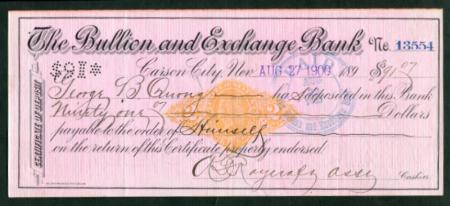 The Bullion and Exchange Bank No. 13554
$91*
Carson City, Nev AUG 27 1900 189 $91 07
George B has deposited in this Bank
Ninety one 07 Dollars
payable to the order of Himself
on the return of this Certificate properly endorsed
Asst Cashier.
CERTIFICATE OF DEPOSIT